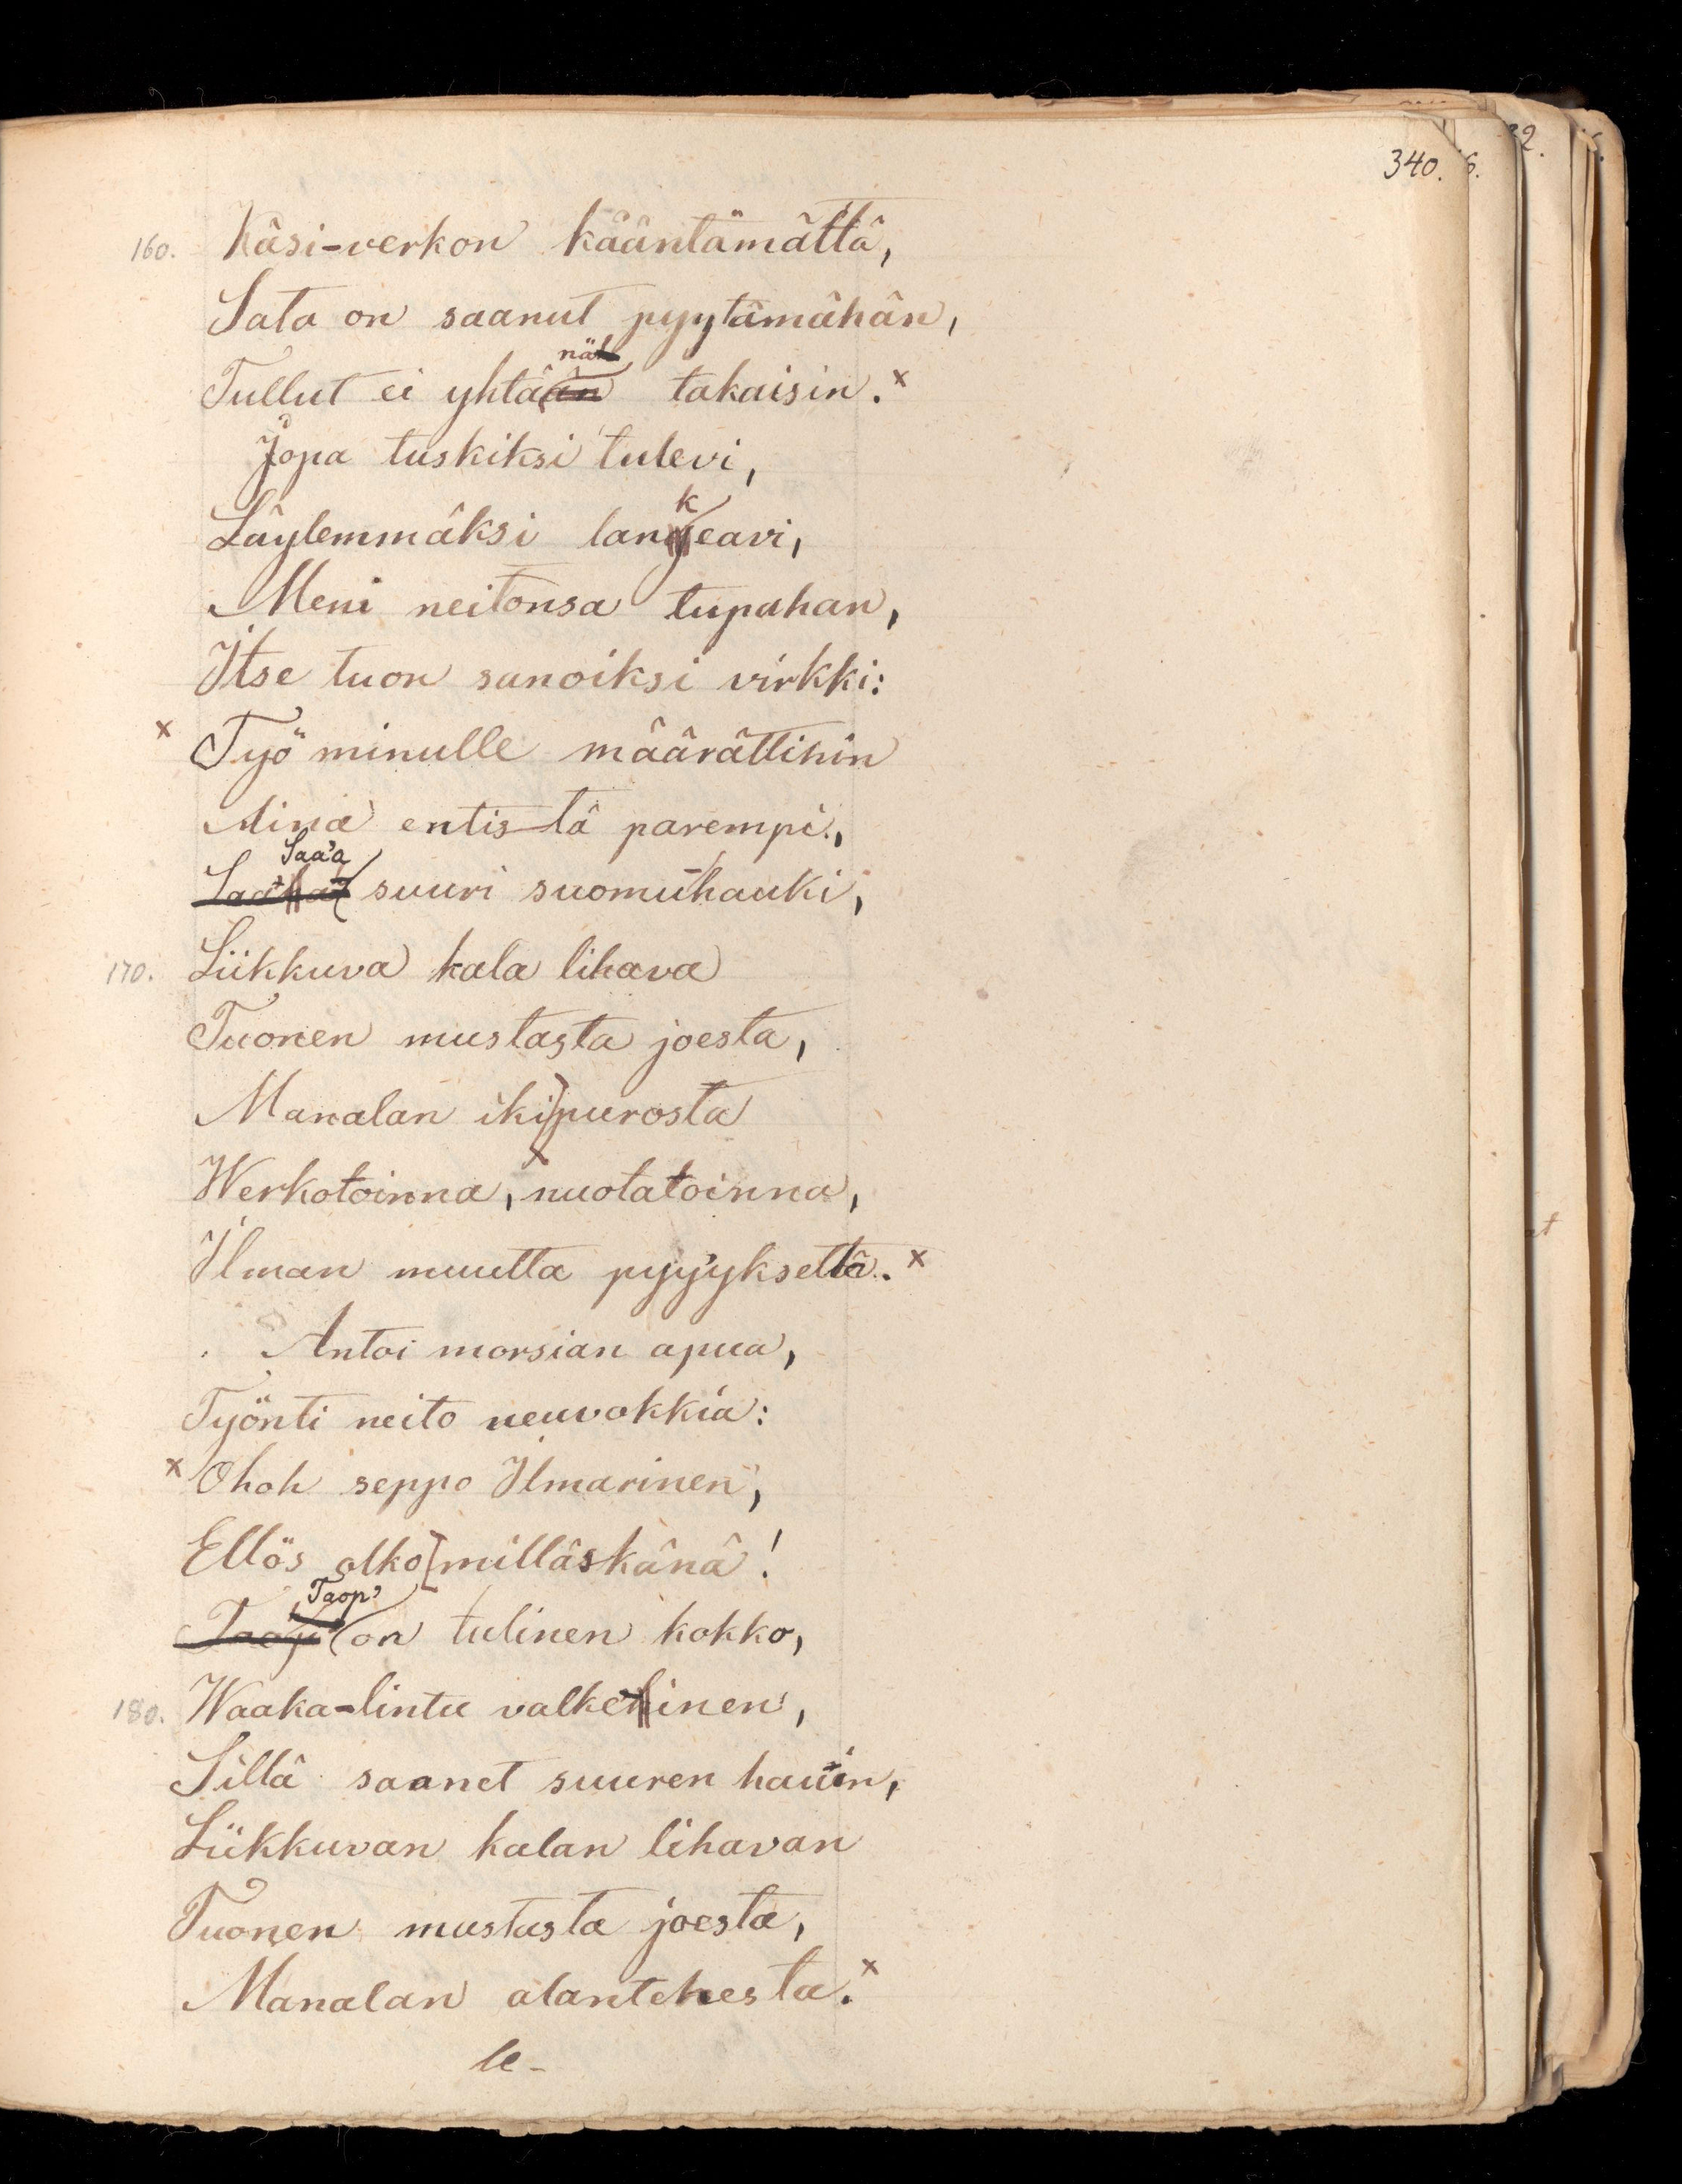 340.
160. Käsi-verkon kääntämättä,
Sata on saanut pyytämähän,
nä
Tullut ei yhtään takaisin. x
Jopa tuskiksi tulevi,
k
Läylemmäksi langeavi,
Meni neitonsa tupahan,
Itse tuon sanoiksi virkki:
x Työ minulle määrättihin
Minä entistä parempi,
Saa'a
suuri suomuhauki,
170. Liikkuva kala lihava
Tuonen mustasta joesta,
Manalan iki]purosta
Werkotoinna, nuotatoinna,
Ilman muutta pyy'yksettä. x
Antoi morsian apua,
Työnti neito neuvokkia:
x Ohoh seppo Ilmarinen,
Ellös olko[milläskänä!
Taop'
Taop' on tulinen kokko,
180. Waaka-lintu valkehinen,
Sillä saanet suuren hauin,
Liikkuvan kalan lihavan
Tuonen mustasta joesta,
Manalan alantehesta. x
le-